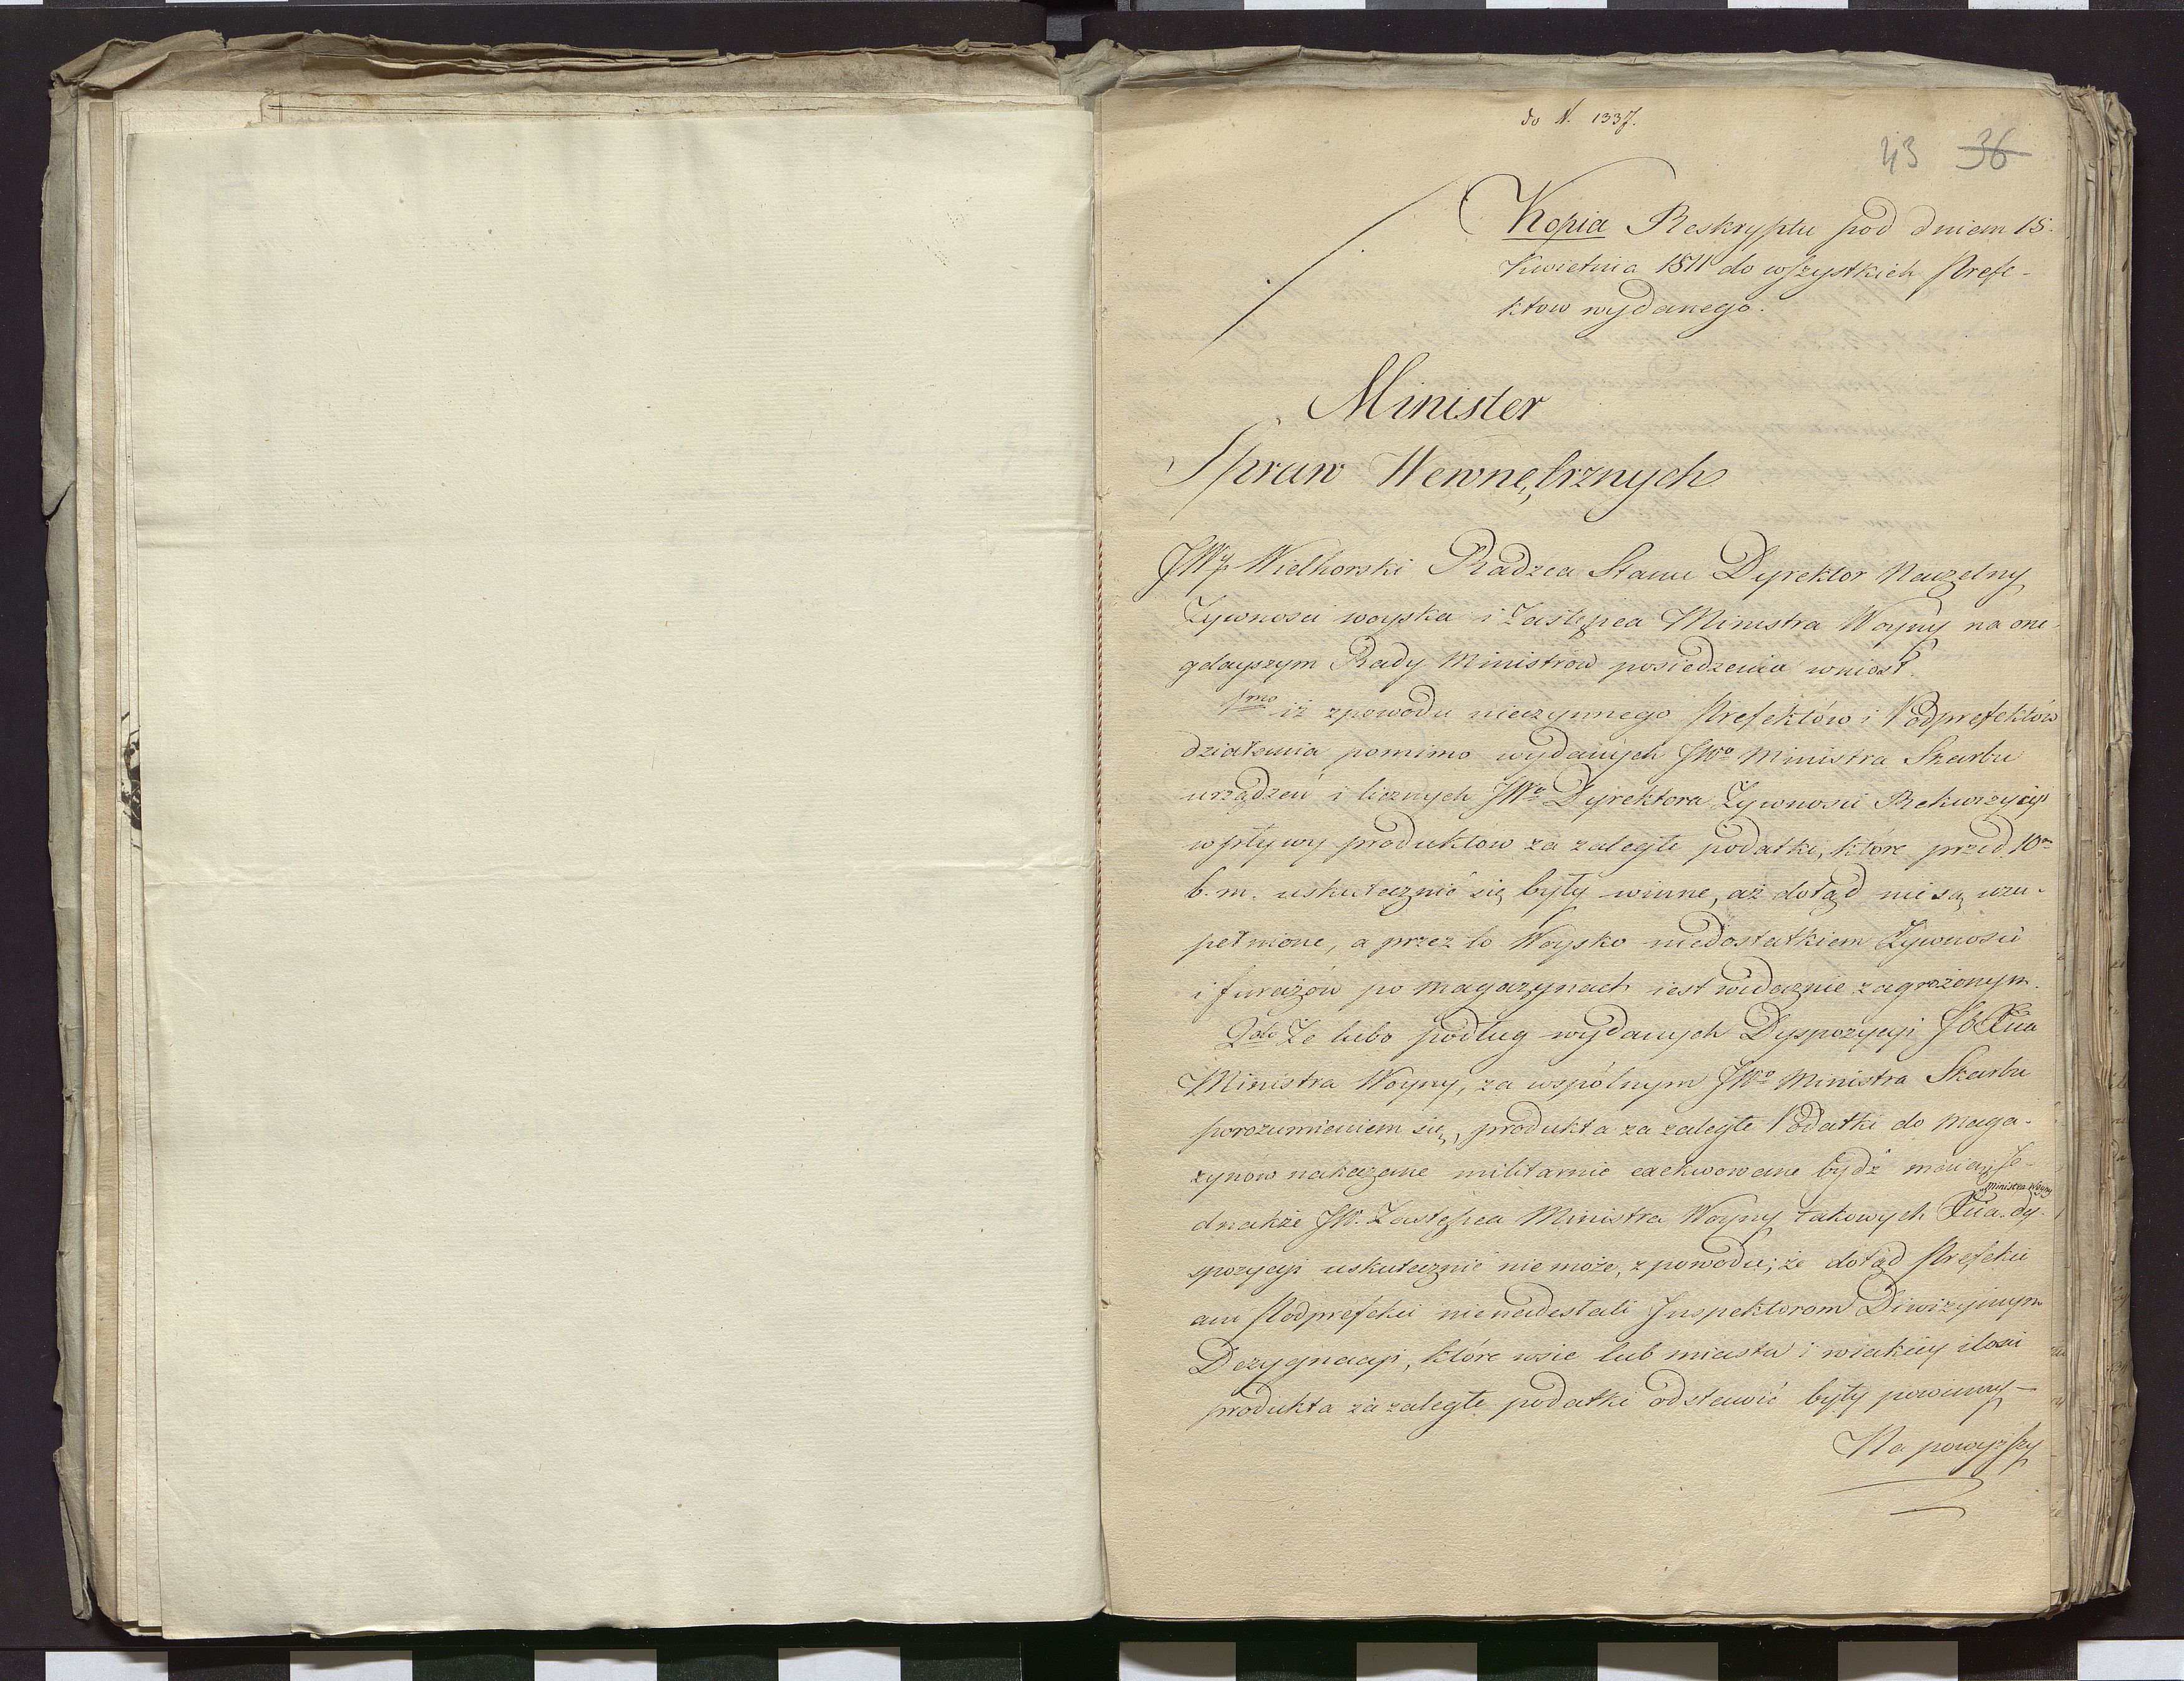 do N. 1337.
43 36
Kopia Reskryptu pod dniem 15.
Kwietnia 1811 do wszystkich Prefe-
ktow wydanego.
Minister
Spraw Wewnętrznych
JWy Wielhorski Radzca Stanu Dyrektor Naczelny
Zywnosci woyska i Zastępca Ministra Woyny na one-
gdayszym Rady Ministrów posiedzeniu wniosł.
1mo iż zpowodu nieczynnego Prefektów i Podprefektów
działania pomimo wydanych JWo Ministra Skarbu
urządzeń i licznych JWo Dyrektora Zywnosci Rekwizycyi
wpływy produktow za zaległe podatki, które przed 10m
b. m. uskutecznić się były winne, aż dotąd nie są uzu-
pełnione, a przez to Woysko niedostatkiem Zywnosci
i furażów po magazynach iest widocznie zagrożonym.
2do Ze lubo podług wydanych Dyspozycyi JO Xcia
Ministra Woyny, za wspólnym JWo Ministra Skarbu
porozumieniem się, produkta za zaległe Podatki do maga-
zynów nakazane militarnie exekwowane bydź maią, Je-
Ministra Woyny
dnakże JW. Zastępca Ministra Woyny takowych Xcia dy-
spozycyi uskutecznić nie może, zpowodu, że dotąd Prefekci
ani Podprefekci nienadesłali Inspektorom Diwizyinym
Dezygnacyi, które wsie lub miasta i wiakiey ilosci
produkta za zaległe podatki odstawić były powinny –
Na powyższy